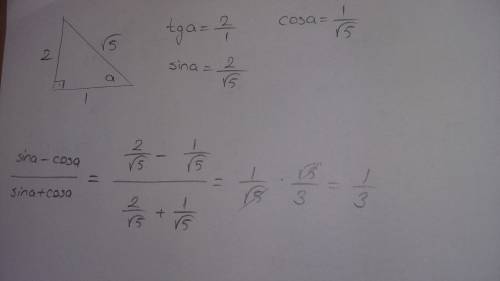 2 √5 a 1
tga = 2/1 cosa = 1/√5
sina = 2/√5
(sina - cosa)/(sina + cosa) = (2/√5 - 1/√5)/(2/√5 + 1/√5) = 1/√5 · √5/3 = 1/3